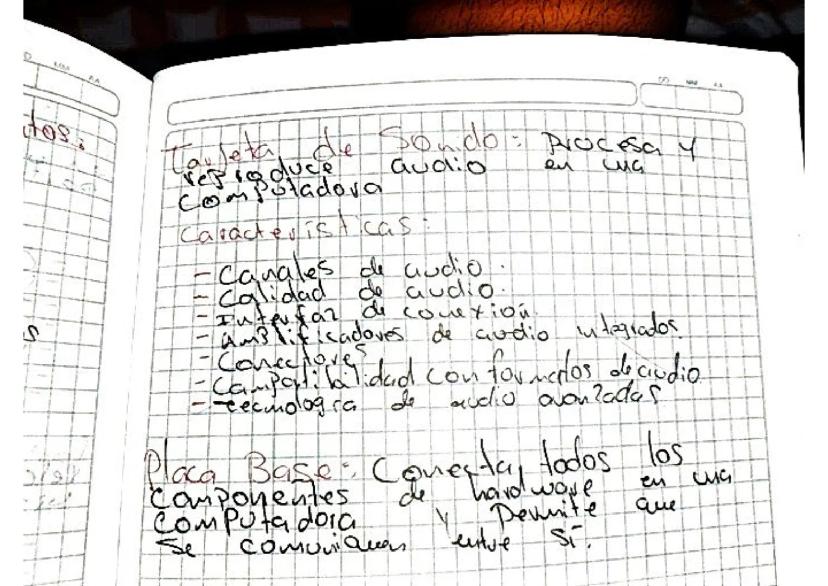 tos:
Tarjeta de Sonido: Procesa y
reproduce audio en una
Computadora
Características:
- Canales de audio.
- Calidad de audio.
- Interfaz de conexión.
- amplificadores de audio integrados.
- Conectores
- Compatibilidad con formatos de audio
- tecnologia de audio avanzadas
Placa Base: Conecta todos los
componentes de hardware en una
computadora y Permite que
Se comuniquen entre Sí.